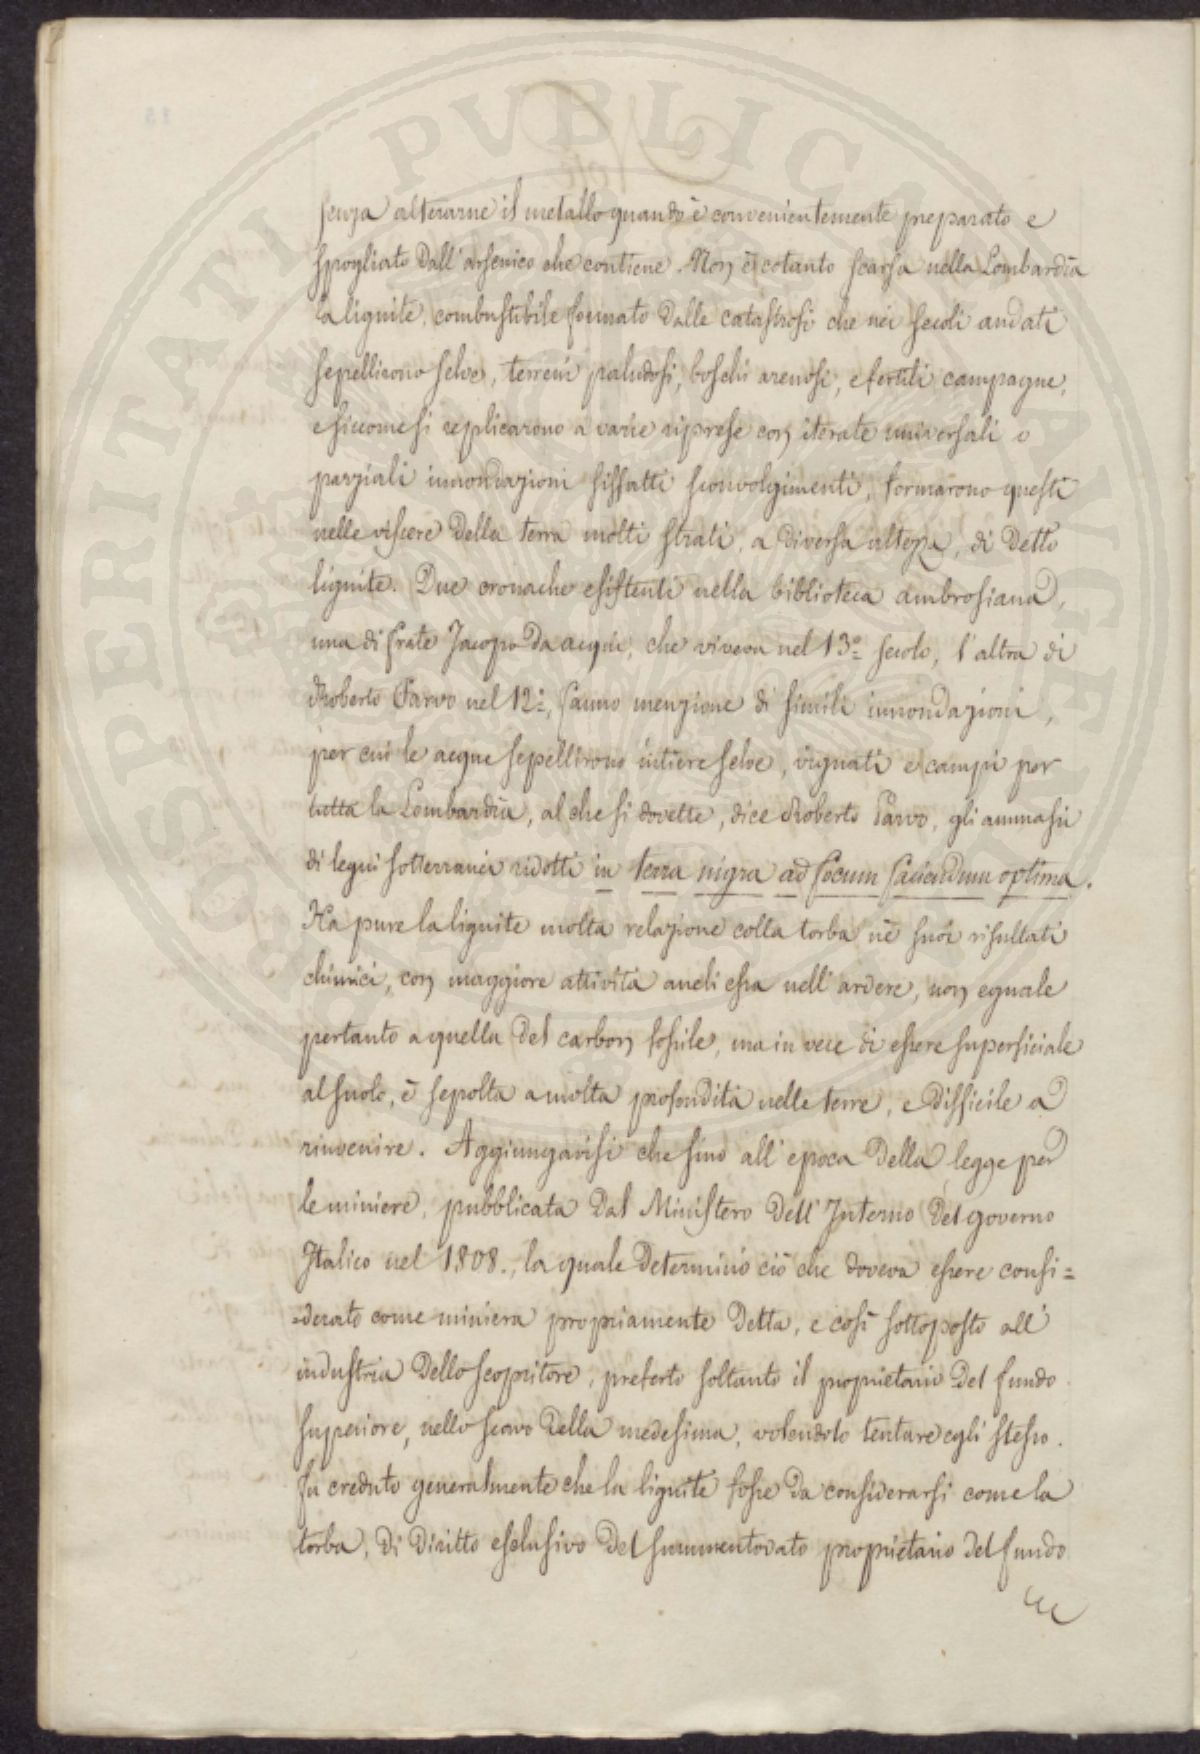 senza alterarne il metallo quando è convenientemente preparato e
spogliato dall'arsenico che contiene. Non è cotanto scarsa nella Lombardia
la lignite, combustibile formato dalle catastrofi che nei secoli andati
sepellirono selve, terreni paludosi, boschi arenosi, e fertili campagne,
e siccome si replicarono a varie riprese con iterate universali o
parziali innondazioni siffatti sconvolgimenti, formarono questi
nelle viscere della terra molti strati, a diversa altezza, di detto
lignite. Due cronache esistenti nella biblioteca ambrosiana,
una di frate Jacopo da acqui, che viveva nel 13º secolo, l'altra di
Roberto Parvo nel 12º, fanno menzione di simili innondazioni,
per cui le acque sepellirono intiere selve, vignati e campi per
tutta la Lombardia, al che si dovette, dice Roberto Parvo, gli ammassi
di legni sotterranei ridotti in terra nigra ad focum faciendum optima.
Ha pure la lignite molta relazione colla torba ne' suoi risultati
chimici, con maggiore attività anch'essa nell'ardere, non eguale
pertanto a quella del carbon fossile, ma in vece di essere superficiale
al suolo, è sepolta a molta profondità nelle terre, e difficile a
rinvenire. Aggiungavisi che sino all'epoca della legge per
le miniere, pubblicata dal Ministero dell'Interno del governo
Italico nel 1808., la quale determinò ciò che doveva essere consi=
=derato come miniera propriamente detta, e così sottoposto all'
industria dello scopritore, preferto soltanto il proprietario del fundo
superiore, nello scavo della medesima, volendolo tentare egli stesso.
fu creduto generalmente che la lignite fosse da considerarsi come la
torba, di diritto esclusivo del summentovato proprietario del fundo
PROSPERITATI PUBLICAE AUGENDAE